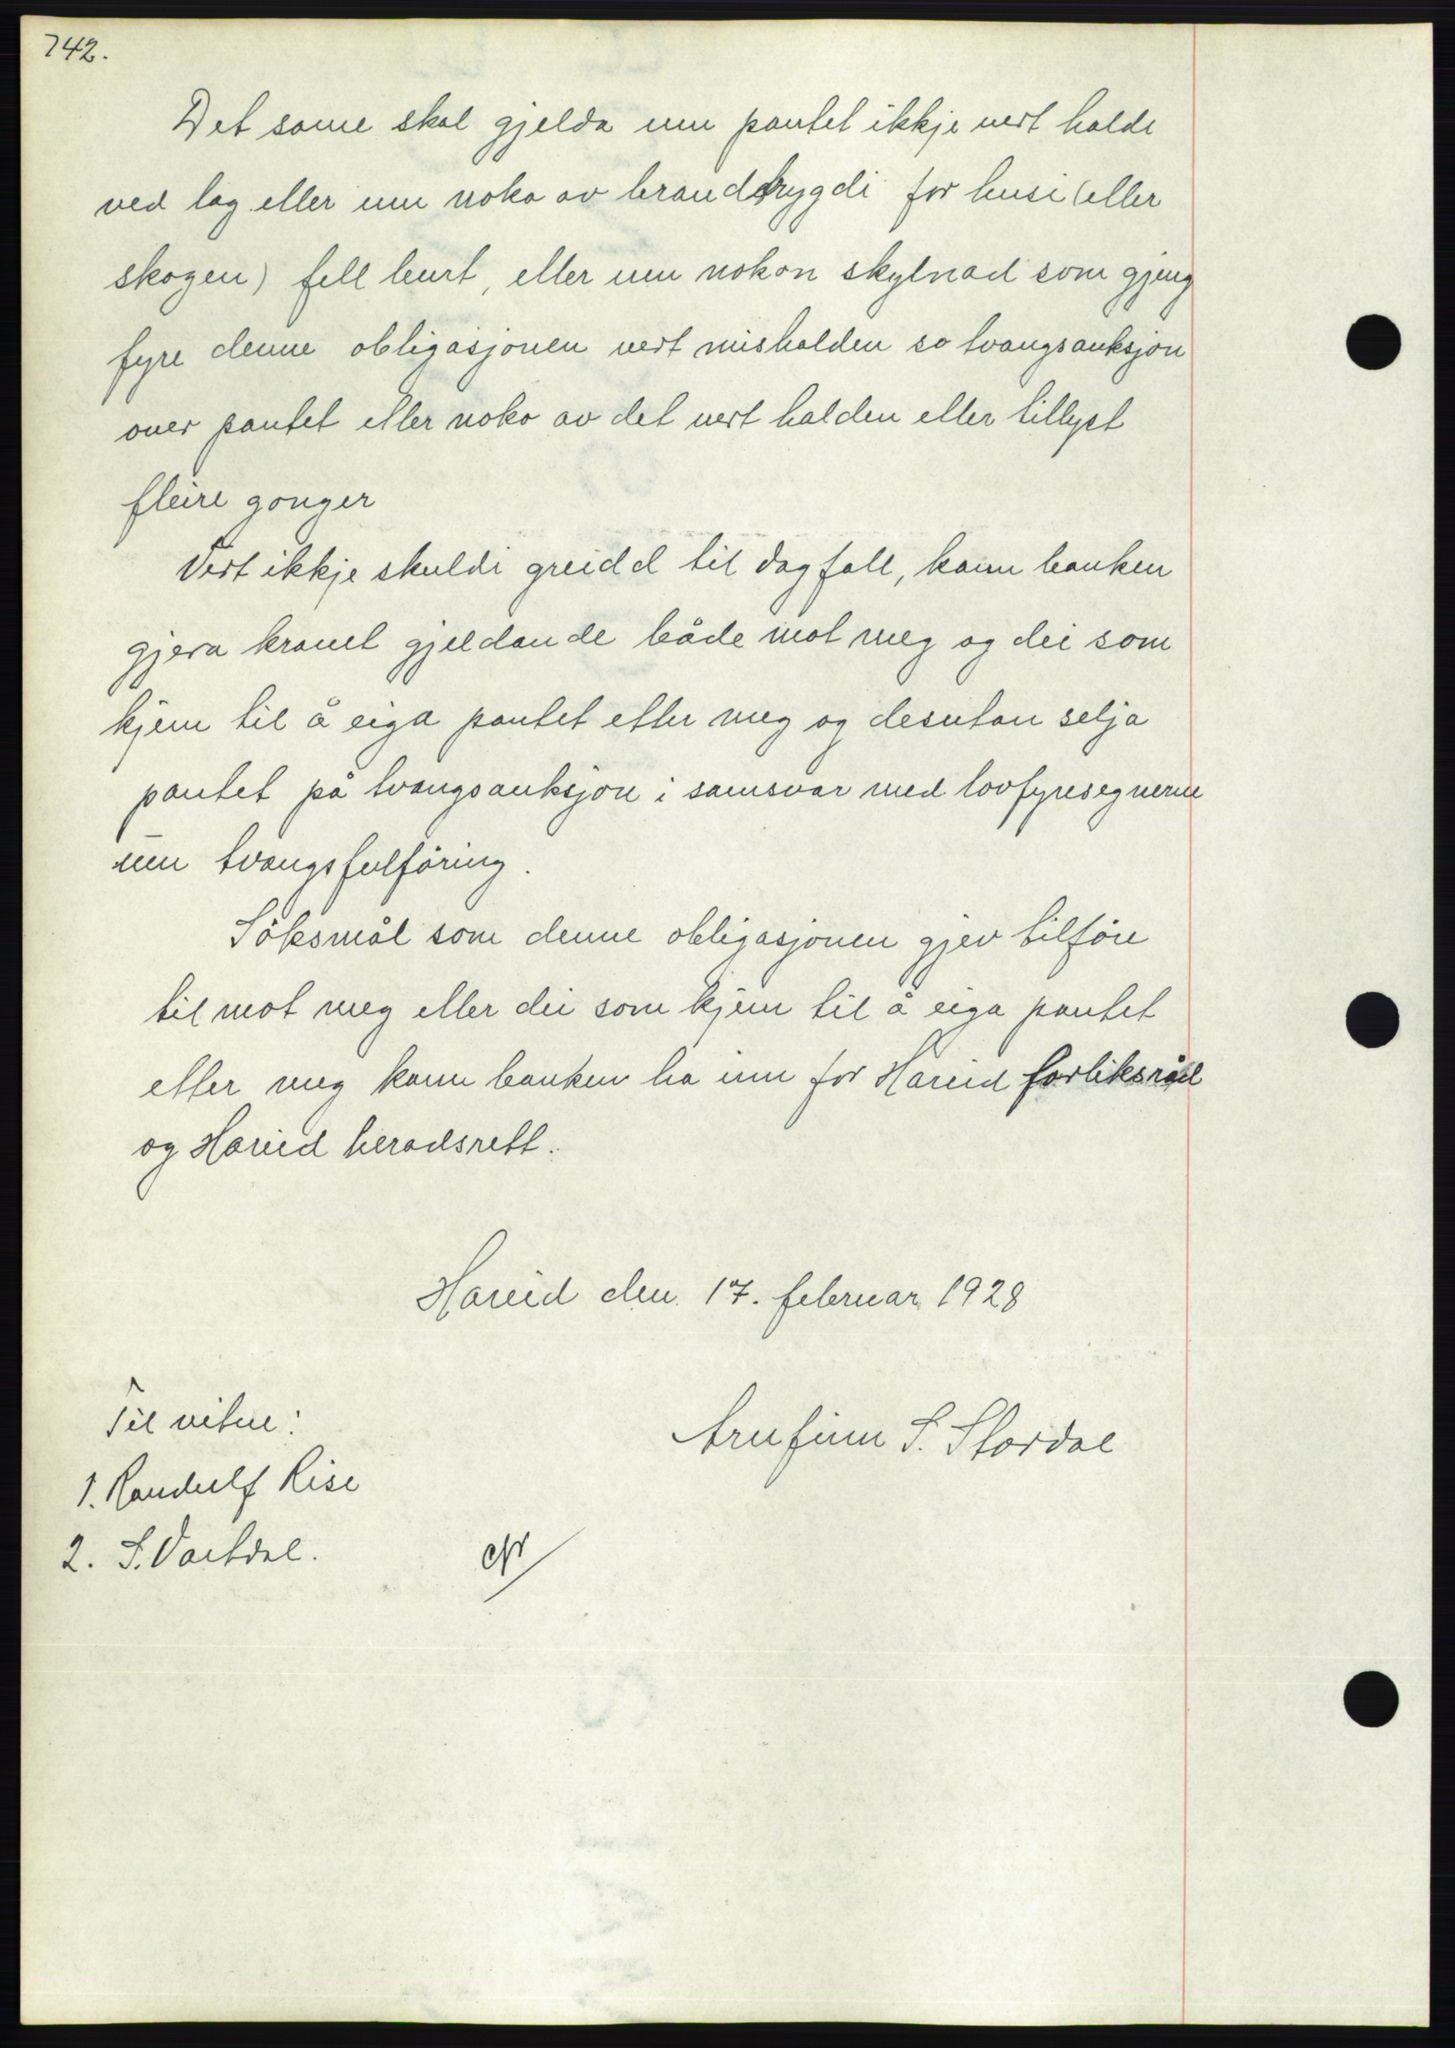 742.
Det same skal gjelda um pantet ikkje vert halde
ved lag eller um noko av brandtrygdi for husi (eller
skogen) fell burt, eller um nokon skylnad som gjeng
fyre denne obligasjonen vert mishalden so tvangsauksjon
over pantet eller noko av det vert halden eller tillyst
fleire gonger
Vert ikkje skuldi greidd til dagfall, kann banken
gjera kravet gjeldande både mot meg og dei som
kjem til å eiga pantet etter meg og desutan selja
pantet på tvangsauksjon i samsvar med lovfyresegnerne
um tvangsfulföring.
Söksmål som denne obligasjonen gjev tilföre
til mot meg eller dei som kjem til å eiga pantet
etter meg kann banken ha inn for Hareid forliksråd
og Hareid heradsrett.
Hareid den 17. februar 1928
Til vitne:
Arnfinn S. Stordal
1. Randulf Rise
2. S. Vartdal.